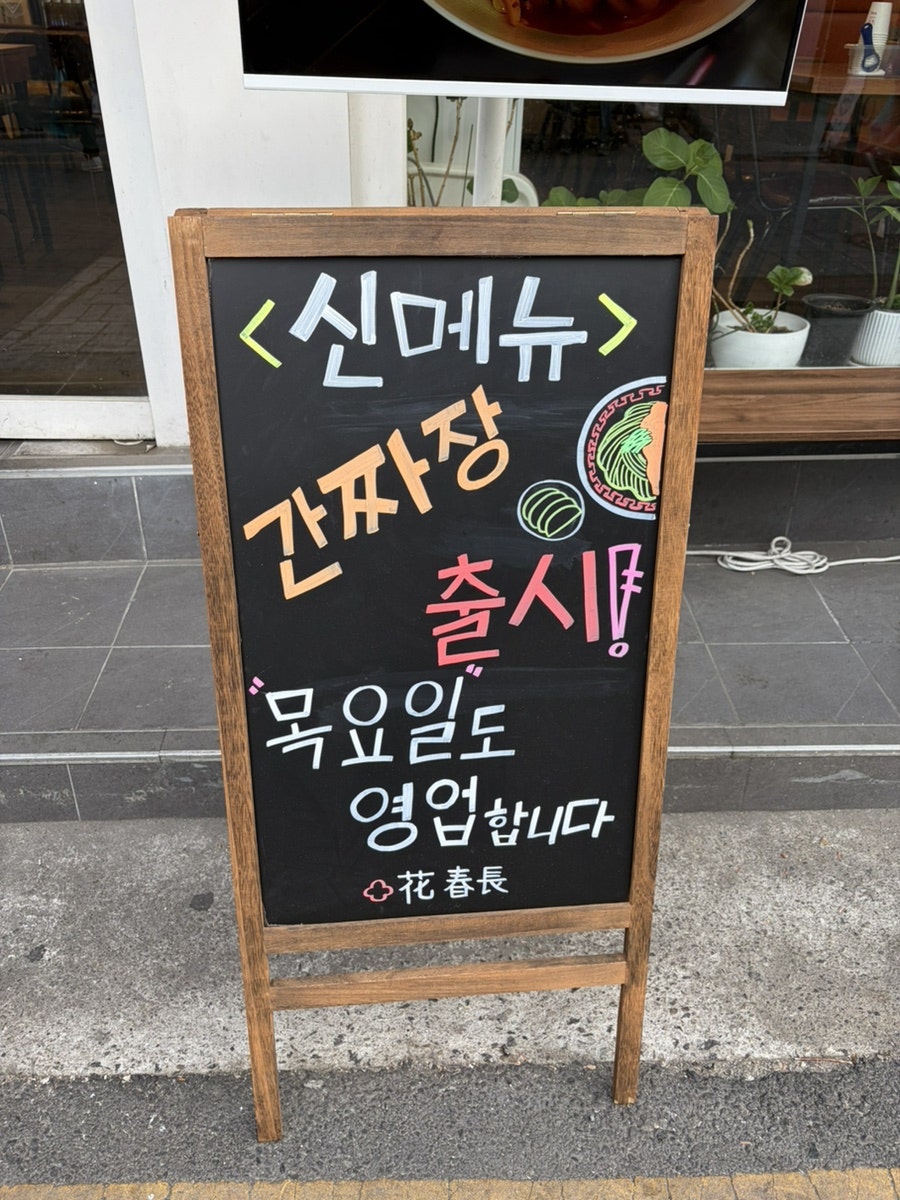 <신메뉴>
간짜장
출시!
"목요일"도
영업합니다
花春長